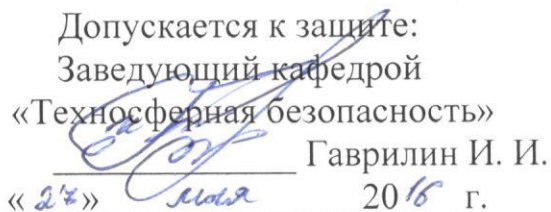 Допускается к защите:
Заведующий кафедрой
«Техносферная безопасность»
Гаврилин И. И.
« 27 » мая 2016 г.